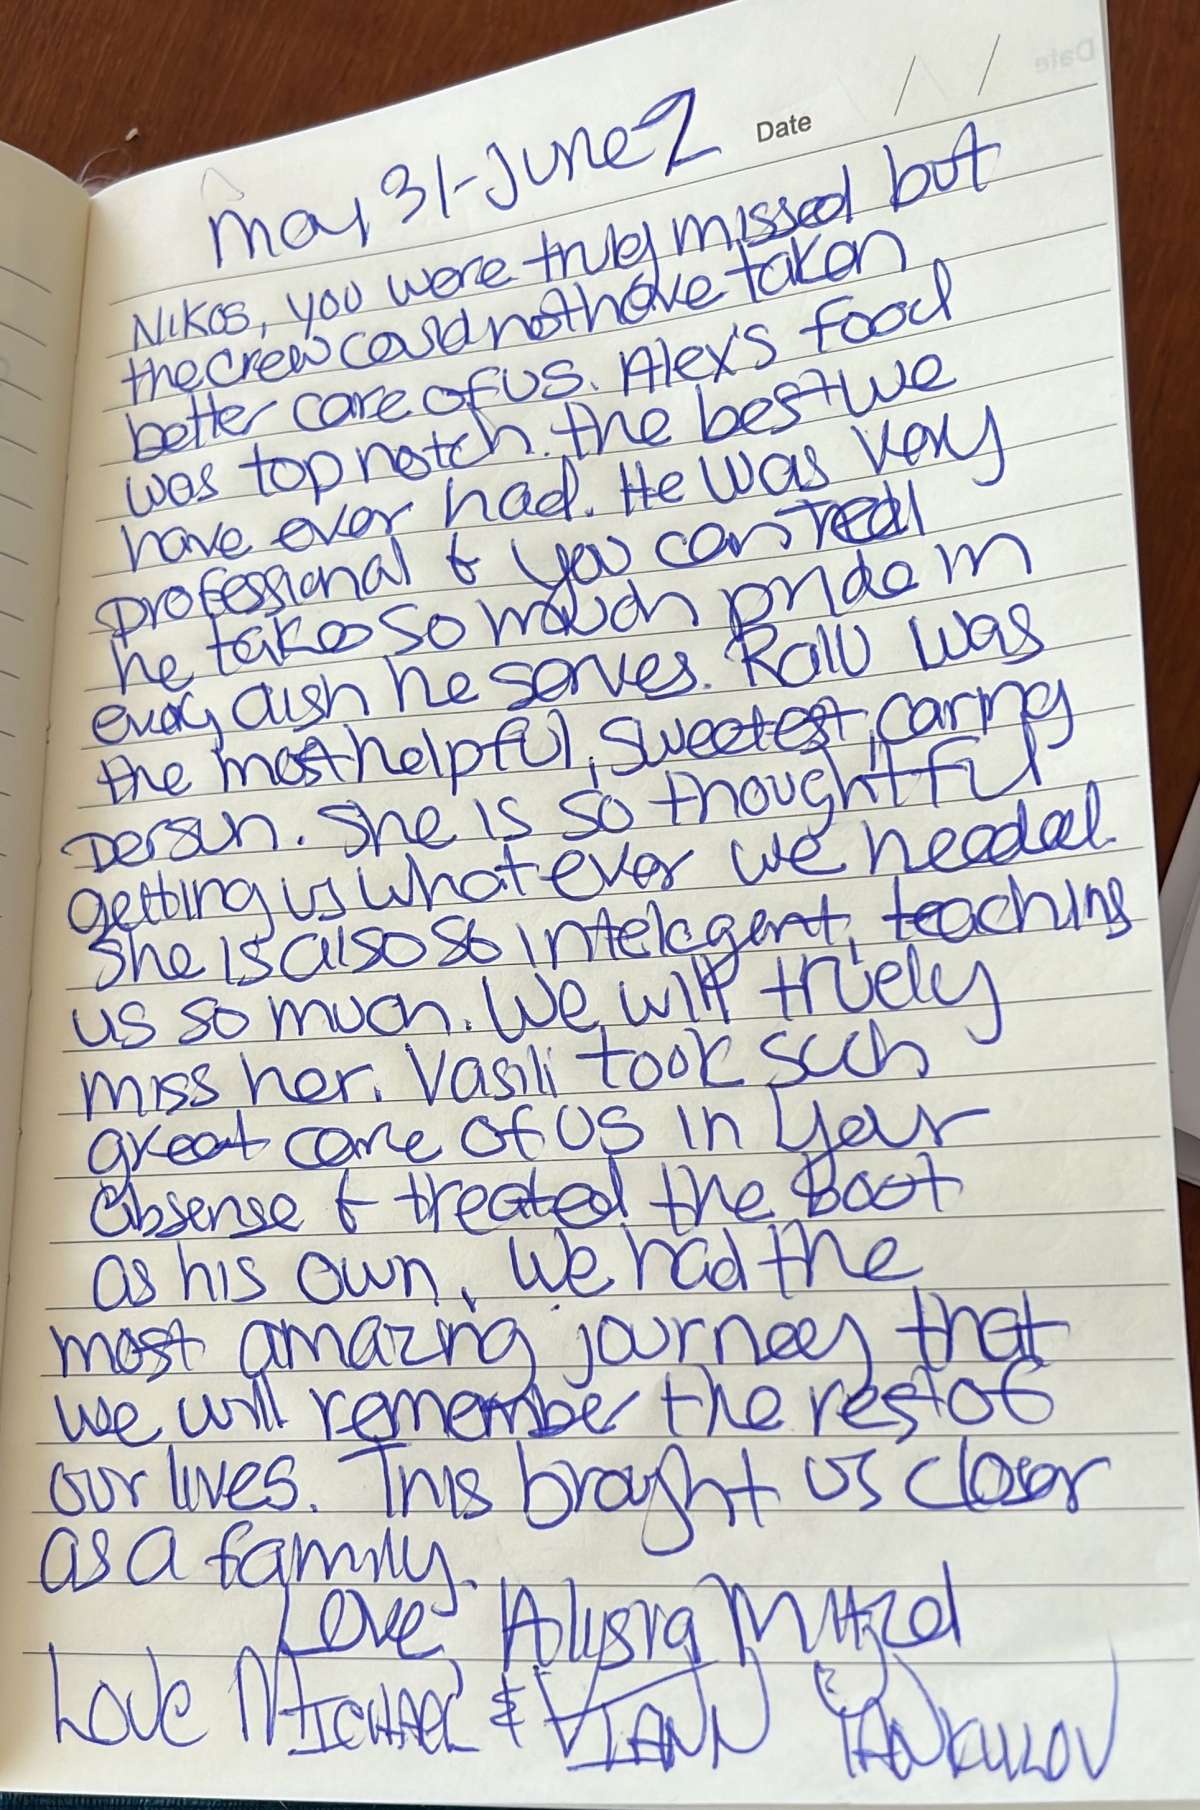 Date / /
May 31-June 2
Nikos, you were truly missed but
the crew could not have taken
better care of us. Alex's food
was top notch. the best we
have ever had. He was very
professional & you can tell
he takes so much pride in
every dish he serves. Ralu was
the most helpful, sweetest, caring
person. She is so thoughtful
getting us what ever we needed.
She is also so intelegent, teaching
us so much. We will truely
miss her. Vasili took such
great care of us in your
absense & treated the Boat
as his own. We had the
most amazing journey that
we will remember the rest of
our lives. This brought us closer
as a family.
Love, Alysia
Love Michael &